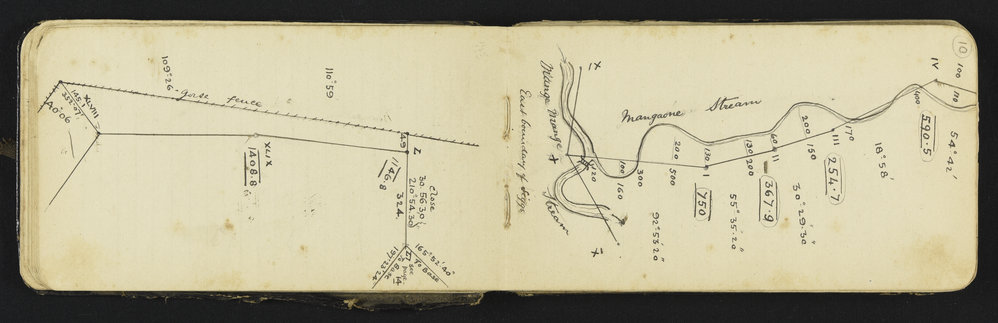 109°26
gorse fence
110°59
XLVIII
145.1
252.07
40°06
XLIX
1408.8
149
Z
1146.8
324.
close
30 56 30
210° 54.30
165° 52' 40"
To Base
see page 14
10
Mangaone Stream
Mange Mange Stream
East boundary of
IX
X
IV
100
110
400
590.5
54° 42'
170
III
18° 58'
200
150
254.7
30° 29' 30"
60
II
130
200
367.9
55° 35' 20"
130
I
750
200
500
92° 53' 20"
100
300
160
120